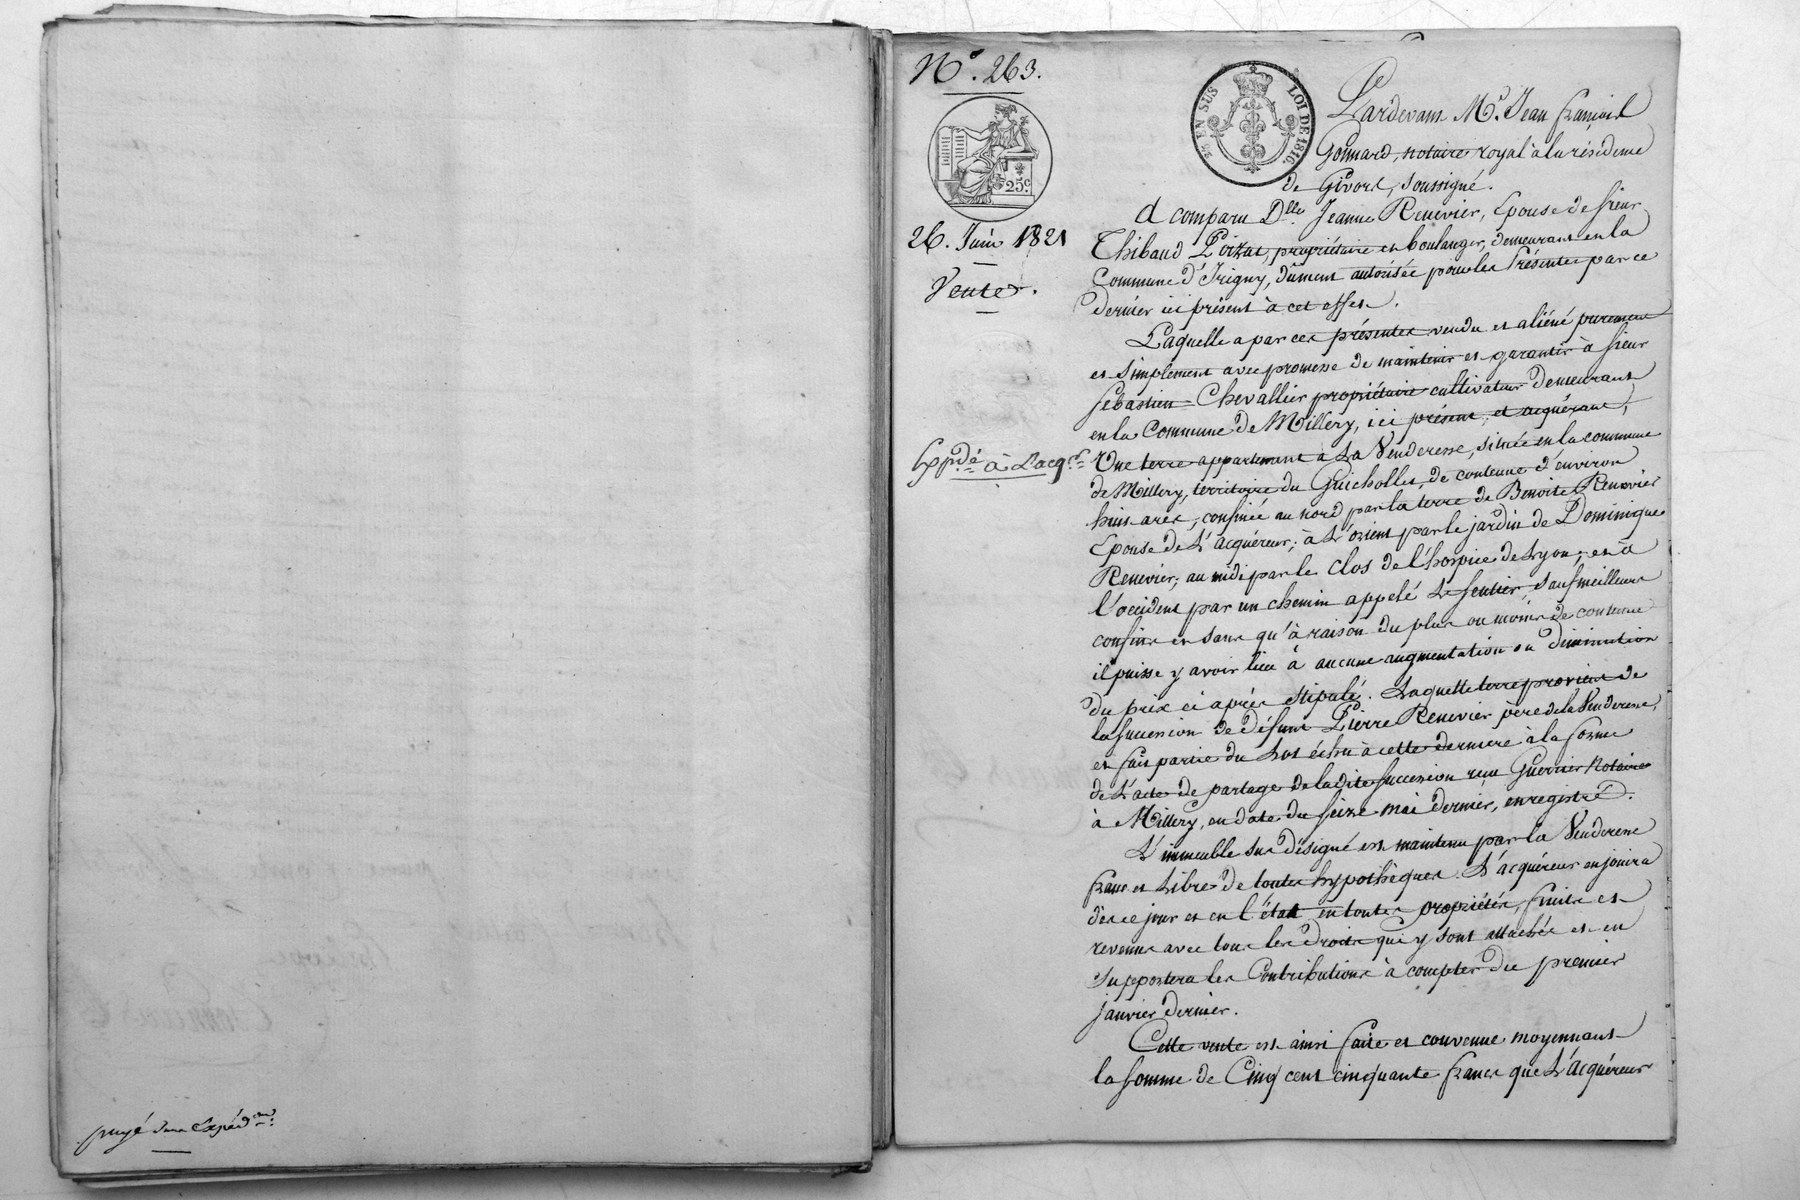 payé une Expéd.on
N.o 263.
25c
26. Juin 1821
Vente.
Exp.dé à L'acq.r
EN SUS
LOI DE 1816.
Pardevant M.e Jean françois
Gonnard, notaire royal à la résidence
de Givors, soussigné.
A comparu D.lle Jeanne Renevier, Epouse de sieur
Thibaud Poizat, propriétaire et boulanger, demeurant en la
Commune d'Irigny, dûment autorisée pour les Présentes par ce
dernier ici présent à cet effet.
Laquelle a par ces présentes vendu et aliéné purement
et simplement avec promesse de maintenir et garantir à sieur
Sébastien Chevallier propriétaire cultivateur demeurant
en la Commune de Millery, ici présent, et acquérant,
Une terre appartenant à La Venderesse, située en la commune
de Millery, territoire du Guicholles, de contenue d'environ
huit ares, confinée au nord par la terre de Benoite Renevier
Epouse de L'acquéreur; à L'orient par le jardin de Dominique
Renevier; au midi par le clos de l'hospice de Lyon; et à
l'occident par un chemin appelé Le Sentier, sauf meilleurs
confins et sans qu'à raison du plus ou moins de contenue
il puisse y avoir lieu à aucune augmentation ou diminution
du prix ci après stipulé. Laquelle terre provient de
la succession de défunt Pierre Renevier père de la Venderesse,
et fait partie du Lot échu à cette dernière à la forme
de L'acte de partage de la dite succession reçu Guerrier Notaire
à Millery, en date du seize mai dernier, enregistré.
L'immeuble sus désigné est maintenu par la Venderesse
franc et Libre de toutes hypothèques. L'acquéreur en jouira
dès ce jour et en l'état en toutes propriétés, fruits et
revenus avec tous les droits qui y sont attachés et en
Supportera les Contributions à compter du premier
janvier dernier.
Cette vente est ainsi faite et convenue moyennant
la somme de Cinq cent cinquante francs que L'acquéreur